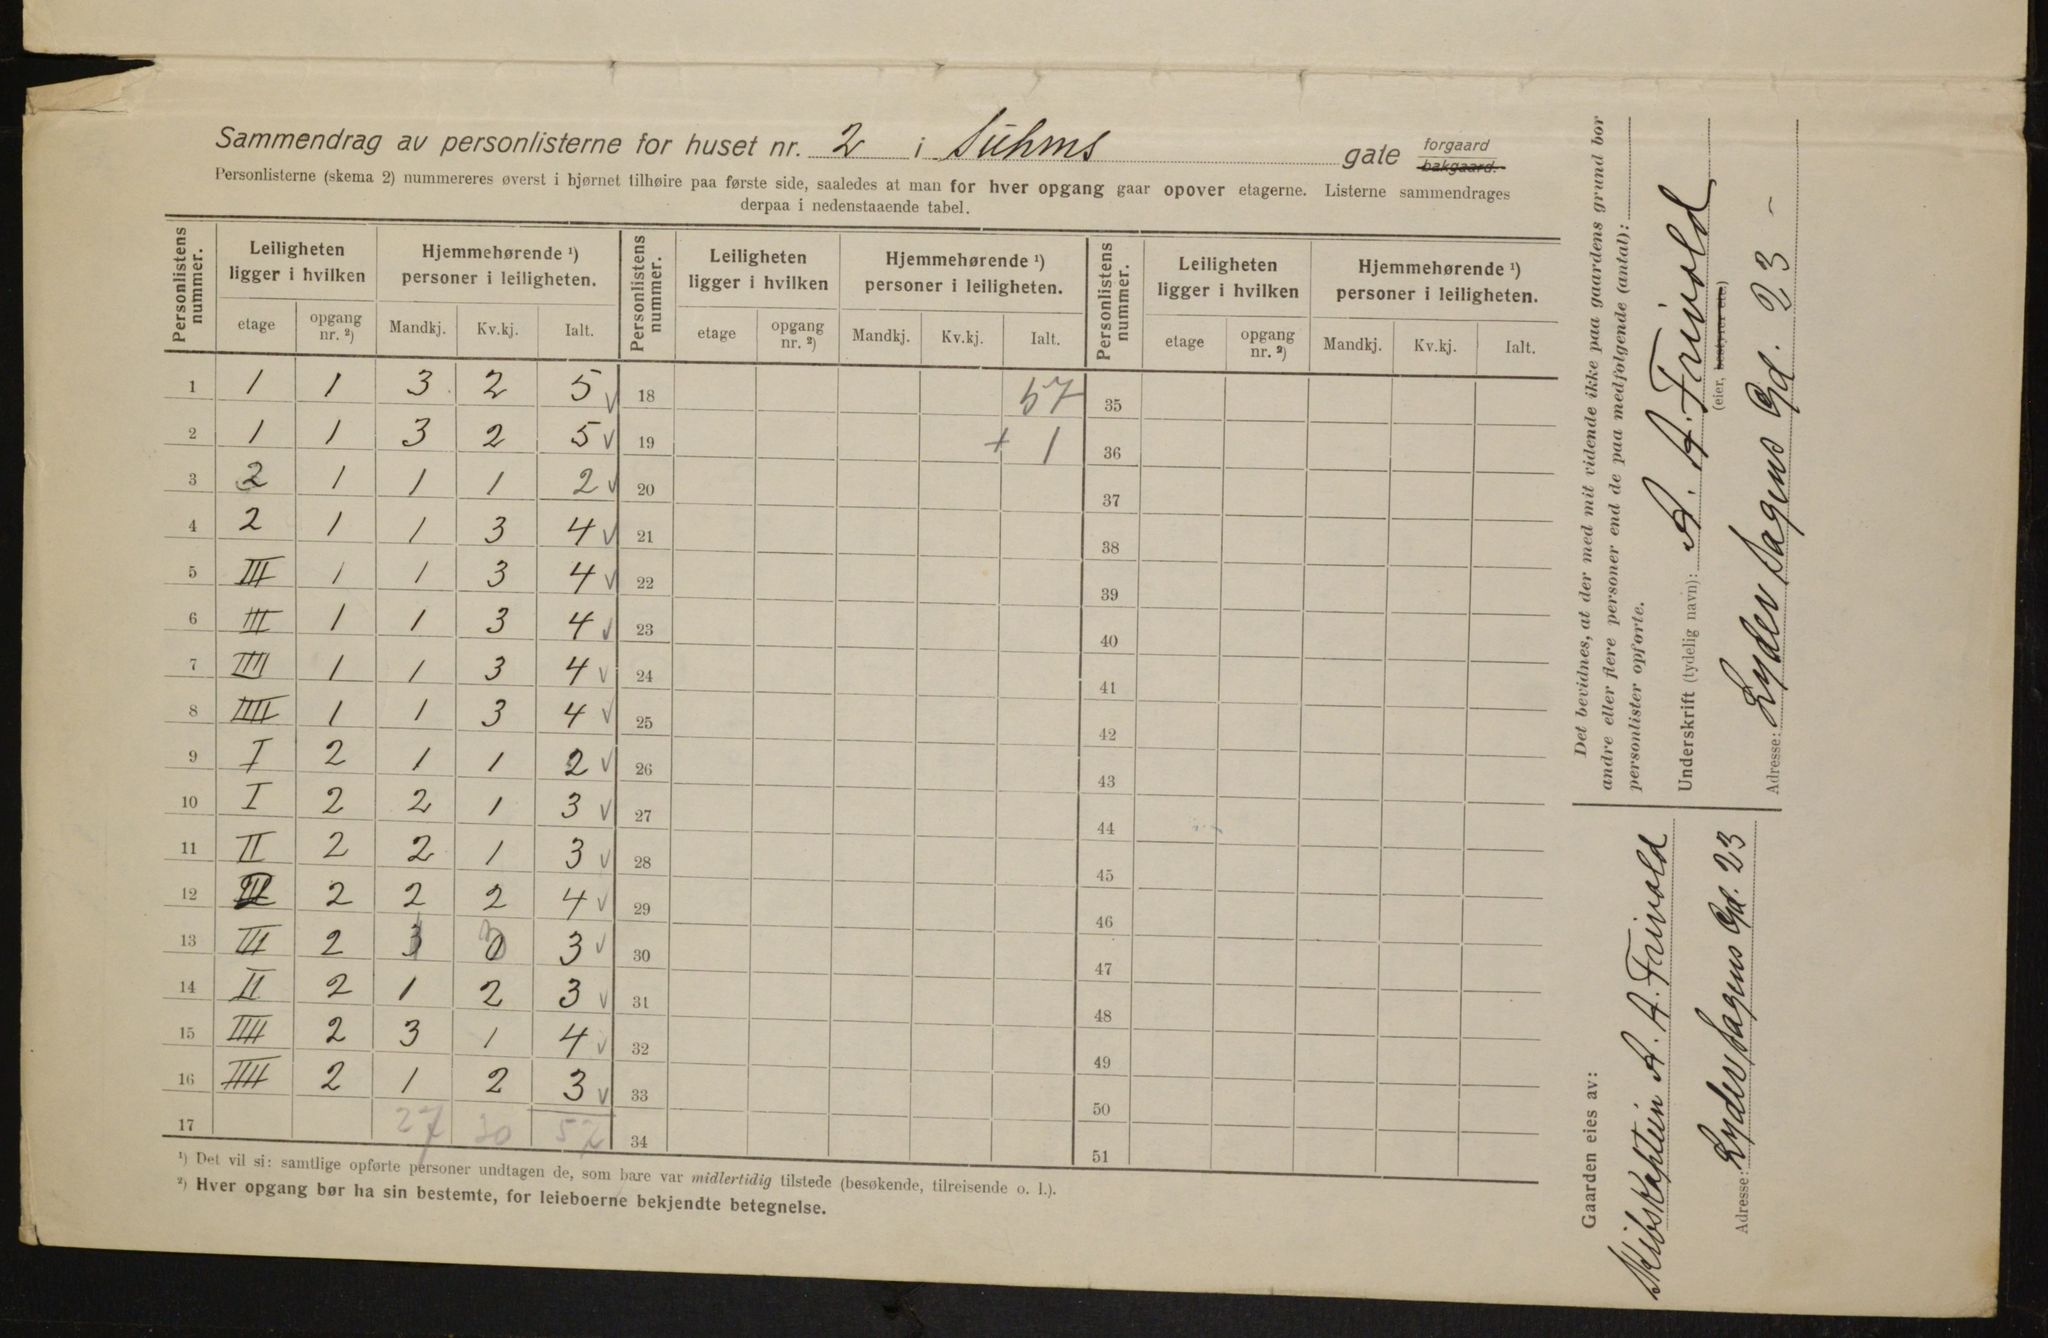 Sammendrag av personlisterne for huset nr. 2 i Suhms gate forgaard bakgaard.
Personlisterne (skema 2) nummereres øverst i hjørnet tilhøire paa første side, saaledes at man for hver opgang gaar opover etagerne. Listerne sammendrages
derpaa i nedenstaaende tabel.
Personlistens nummer. Leiligheten ligger i hvilken Hjemmehørende ¹) personer i leiligheten. Personlistens nummer. Leiligheten ligger i hvilken Hjemmehørende ¹) personer i leiligheten. Personlistens nummer. Leiligheten ligger i hvilken Hjemmehørende ¹) personer i leiligheten.
etage opgang nr. ²) Mandkj. Kv.kj. Ialt. etage opgang nr. ²) Mandkj. Kv.kj. Ialt. etage opgang nr. ²) Mandkj. Kv.kj. Ialt.
1 1 1 3 2 5 √ 18 57 35
2 1 1 3 2 5 √ 19 + 1 36
3 2 1 1 1 2 √ 20 37
4 2 1 1 3 4 √ 21 38
5 III 1 1 3 4 √ 22 39
6 III 1 1 3 4 √ 23 40
7 IIII 1 1 3 4 √ 24 41
8 IIII 1 1 3 4 √ 25 42
9 I 2 1 1 2 √ 26 43
10 I 2 2 1 3 √ 27 44
11 II 2 2 1 3 √ 28 45
12 2 2 2 4 √ 29 46
13 III 2 3 √ 30 47
14 II 2 1 2 3 √ 31 48
15 IIII 2 3 1 4 √ 32 49
16 IIII 2 1 2 3 √ 33 50
17 27 30 57 34 51
¹) Det vil si: samtlige opførte personer undtagen de, som bare var midlertidig tilstede (besøkende, tilreisende o. l.).
²) Hver opgang bør ha sin bestemte, for leieboerne bekjendte betegnelse.
Det bevidnes, at der med mit vidende ikke paa gaardens grund bor
andre eller flere personer end de paa medfølgende (antal):
personlister opførte.
Underskrift (tydelig navn): A. A. Frivold
(eier, bestyrer etc.)
Adresse: Lyder Sagens Gd. 23 -
Gaarden eies av:
Skibskaptein A. A. Frivold
Adresse: Lyder Sagens Gd. 23